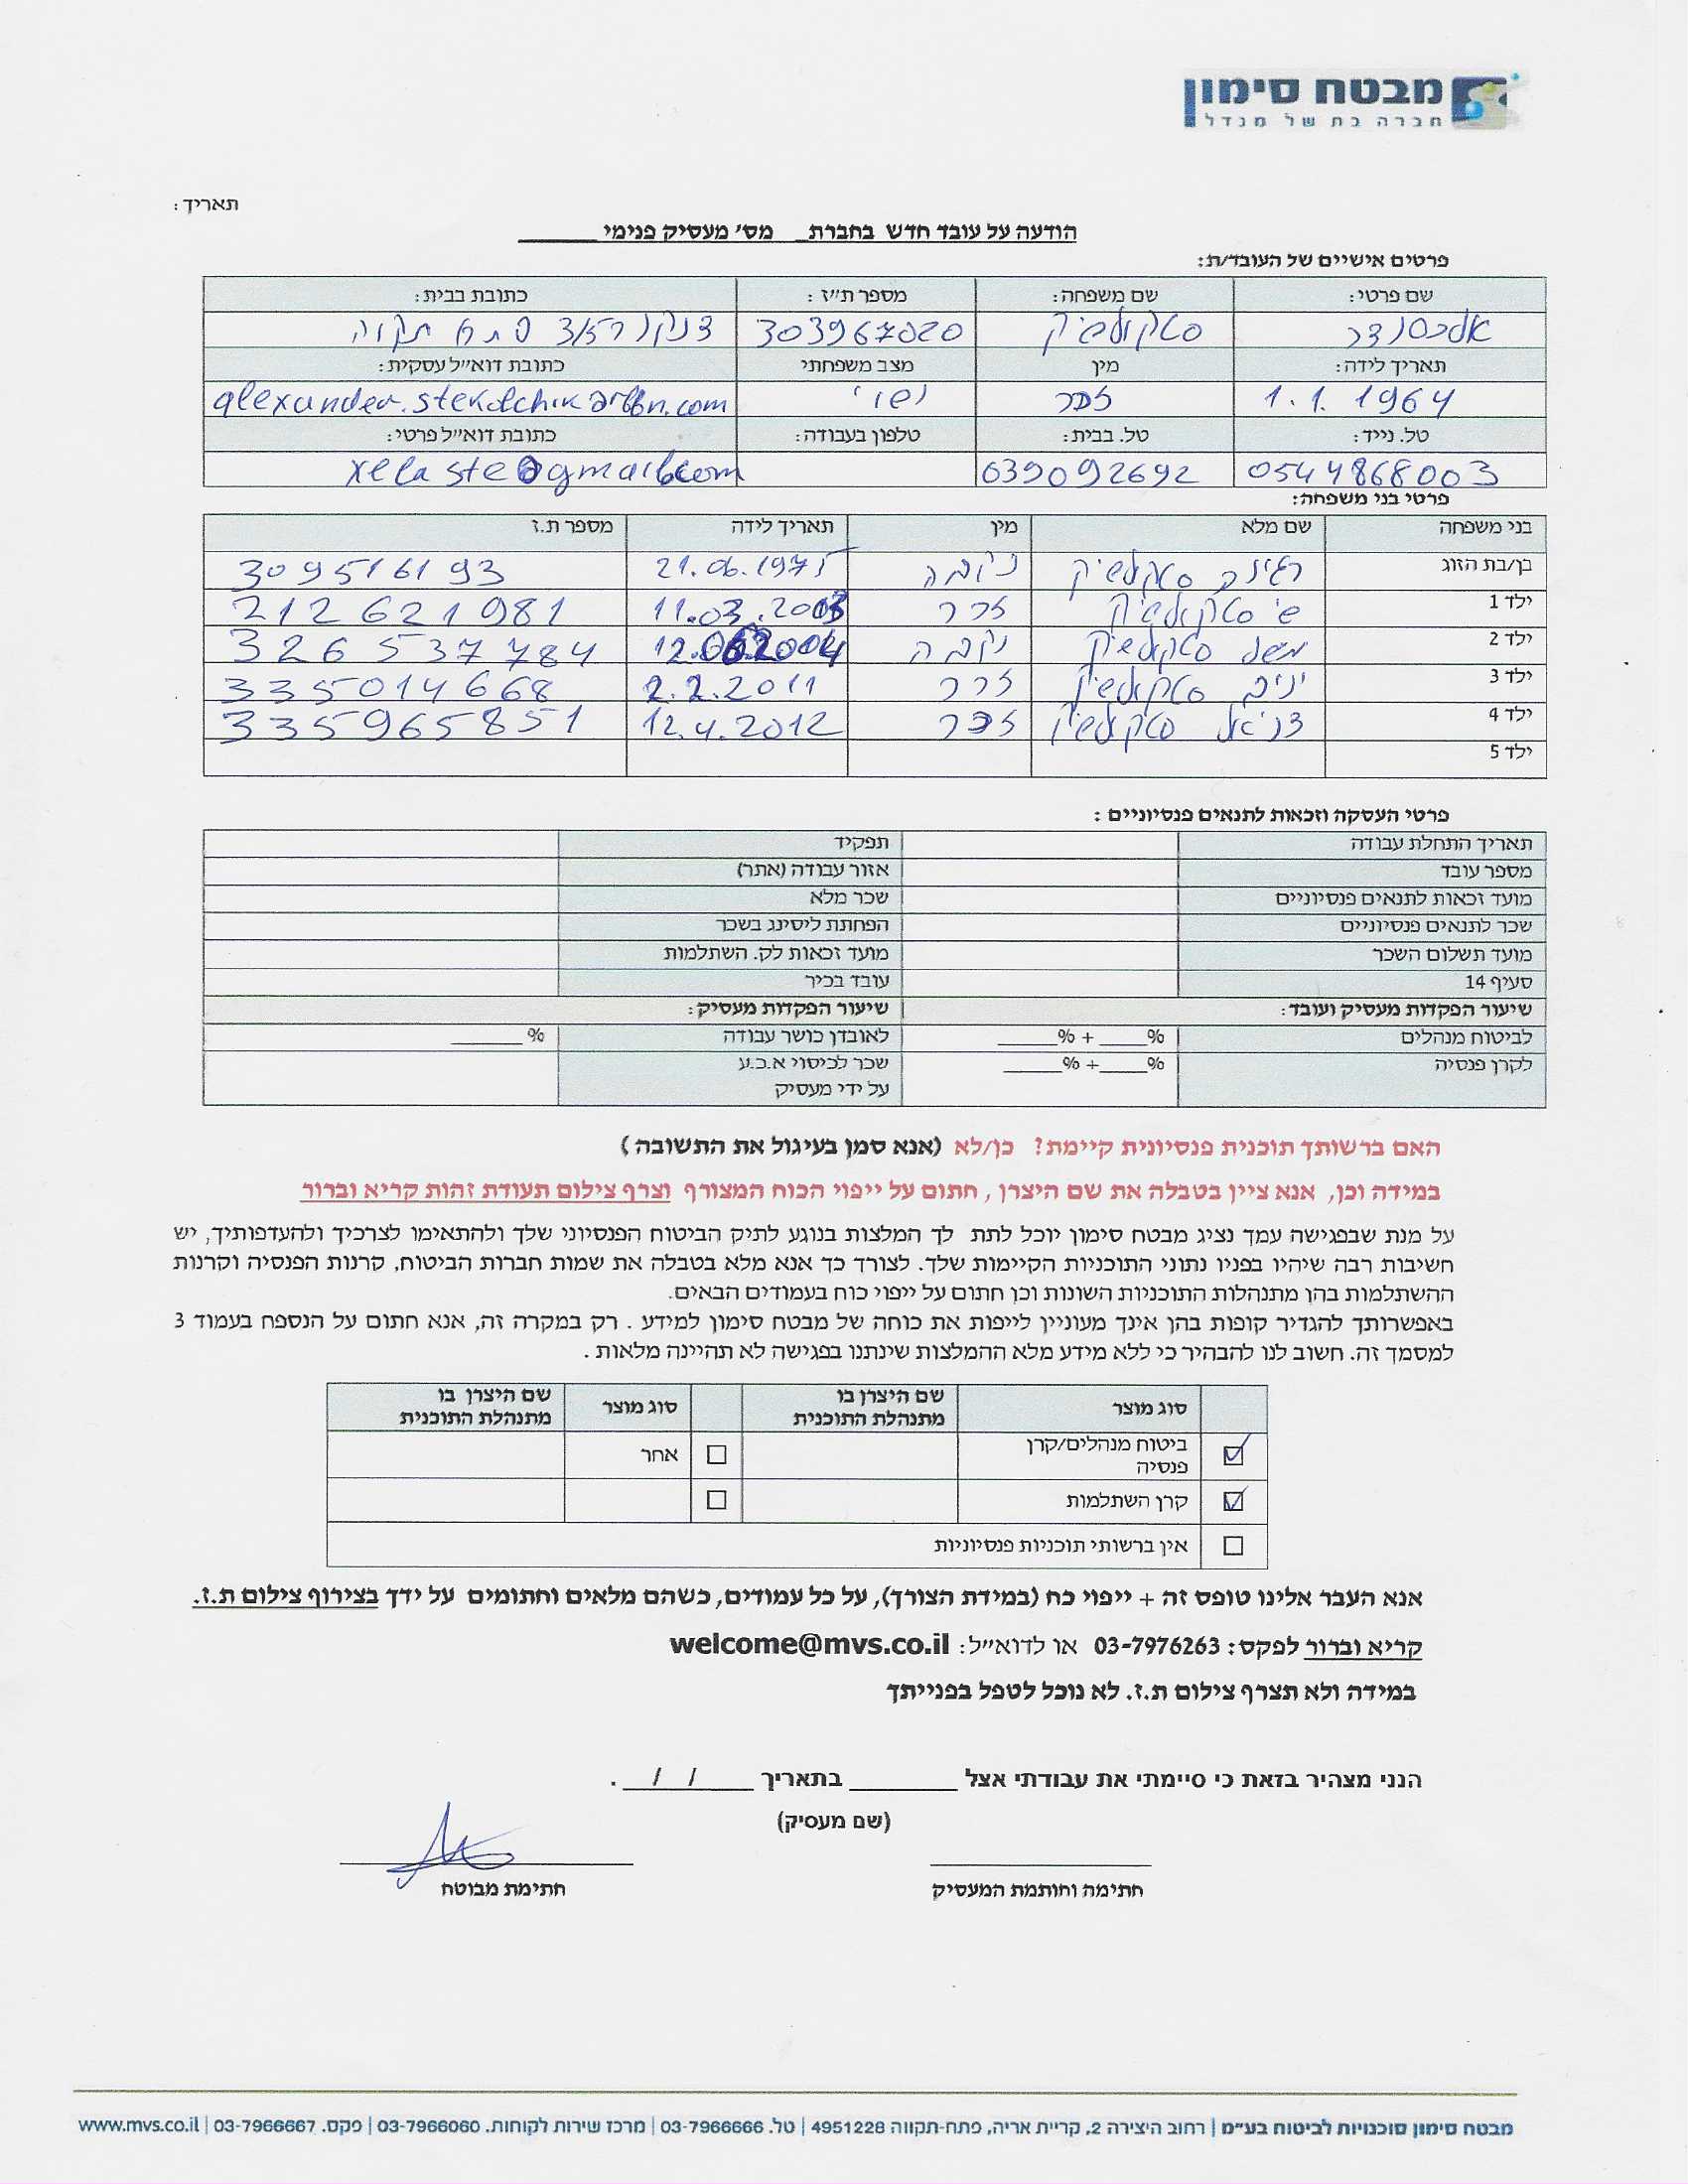 מבטח סימון
חברה בת של מנדל
תאריך:
הודעה על עובד חדש בחברת_ מס' מעסיק פנימי ______
פרטים אישיים של העובד/ת:
שם פרטי: שם משפחה: מספר ת"ז: כתובת בבית:
אלכסנדר סטקולשיק 303967020 פתח תקוה
תאריך לידה: מין מצב משפחתי כתובת דוא"ל עסקית:
1.1.1964 זכר נשוי
טל. נייד: טל. בבית: טלפון בעבודה: כתובת דוא"ל פרטי:
0544868003 039092692 xelaste@gmail.com
פרטי בני משפחה:
בני משפחה שם מלא מין תאריך לידה מספר ת.ז
בן/בת הזוג רגינה סטקולשיק נקבה 21.06.1975 309516193
ילד 1 שי סטקולשיק זכר 11.03.2003 212621981
ילד 2 מישל סטקולשיק נקבה 326537784
ילד 3 יניב סטקולשיק זכר 2.2.2011 335014668
ילד 4 דניאל סטקולשיק זכר 12.4.2012 335965851
ילד 5
פרטי העסקה וזכאות לתנאים פנסיוניים :
תאריך התחלת עבודה תפקיד
מספר עובד אזור עבודה (אתר)
מועד זכאות לתנאים פנסיוניים שכר מלא
שכר לתנאים פנסיוניים הפחתת ליסינג בשכר
מועד תשלום השכר מועד זכאות לק. השתלמות
סעיף 14 עובד בכיר
שיעור הפקדות מעסיק ועובד: שיעור הפקדות מעסיק:
לביטוח מנהלים %____ + %_____ לאובדן כושר עבודה % ______
לקרן פנסיה %____+ %_____ שכר לכיסוי א.כ.ע
על ידי מעסיק
האם ברשותך תוכנית פנסיונית קיימת? כן/לא (אנא סמן בעיגול את התשובה )
במידה וכן, אנא ציין בטבלה את שם היצרן , חתום על ייפוי הכוח המצורף וצרף צילום תעודת זהות קריא וברור
על מנת שבפגישה עמך נציג מבטח סימון יוכל לתת לך המלצות בנוגע לתיק הביטוח הפנסיוני שלך ולהתאימו לצרכיך ולהעדפותיך, יש
חשיבות רבה שיהיו בפניו נתוני התוכניות הקיימות שלך. לצורך כך אנא מלא בטבלה את שמות חברות הביטוח, קרנות הפנסיה וקרנות
ההשתלמות בהן מתנהלות התוכניות השונות וכן חתום על ייפוי כוח בעמודים הבאים.
באפשרותך להגדיר קופות בהן אינך מעוניין לייפות את כוחה של מבטח סימון למידע . רק במקרה זה, אנא חתום על הנספח בעמוד 3
למסמך זה. חשוב לנו להבהיר כי ללא מידע מלא ההמלצות שינתנו בפגישה לא תהיינה מלאות .
סוג מוצר שם היצרן בו מתנהלת התוכנית סוג מוצר שם היצרן בו מתנהלת התוכנית
☑ ביטוח מנהלים/קרן פנסיה ☐ אחר
☑ קרן השתלמות ☐
☐ אין ברשותי תוכניות פנסיוניות
אנא העבר אלינו טופס זה + ייפוי כח (במידת הצורך), על כל עמודים, כשהם מלאים וחתומים על ידך בצירוף צילום ת.ז.
קריא וברור לפקס: 03-7976263 או לדוא"ל: welcome@mvs.co.il
במידה ולא תצרף צילום ת.ז. לא נוכל לטפל בפנייתך
הנני מצהיר בזאת כי סיימתי את עבודתי אצל ________ בתאריך ___/__/___ .
(שם מעסיק)
חתימה וחותמת המעסיק חתימת מבוטח
מבטח סימון סוכנויות לביטוח בע"מ | רחוב היצירה 2, קריית אריה, פתח-תקווה 4951228 | טל. 03-7966666 | מרכז שירות לקוחות. 03-7966060 | פקס. 03-7966667 | www.mvs.co.il